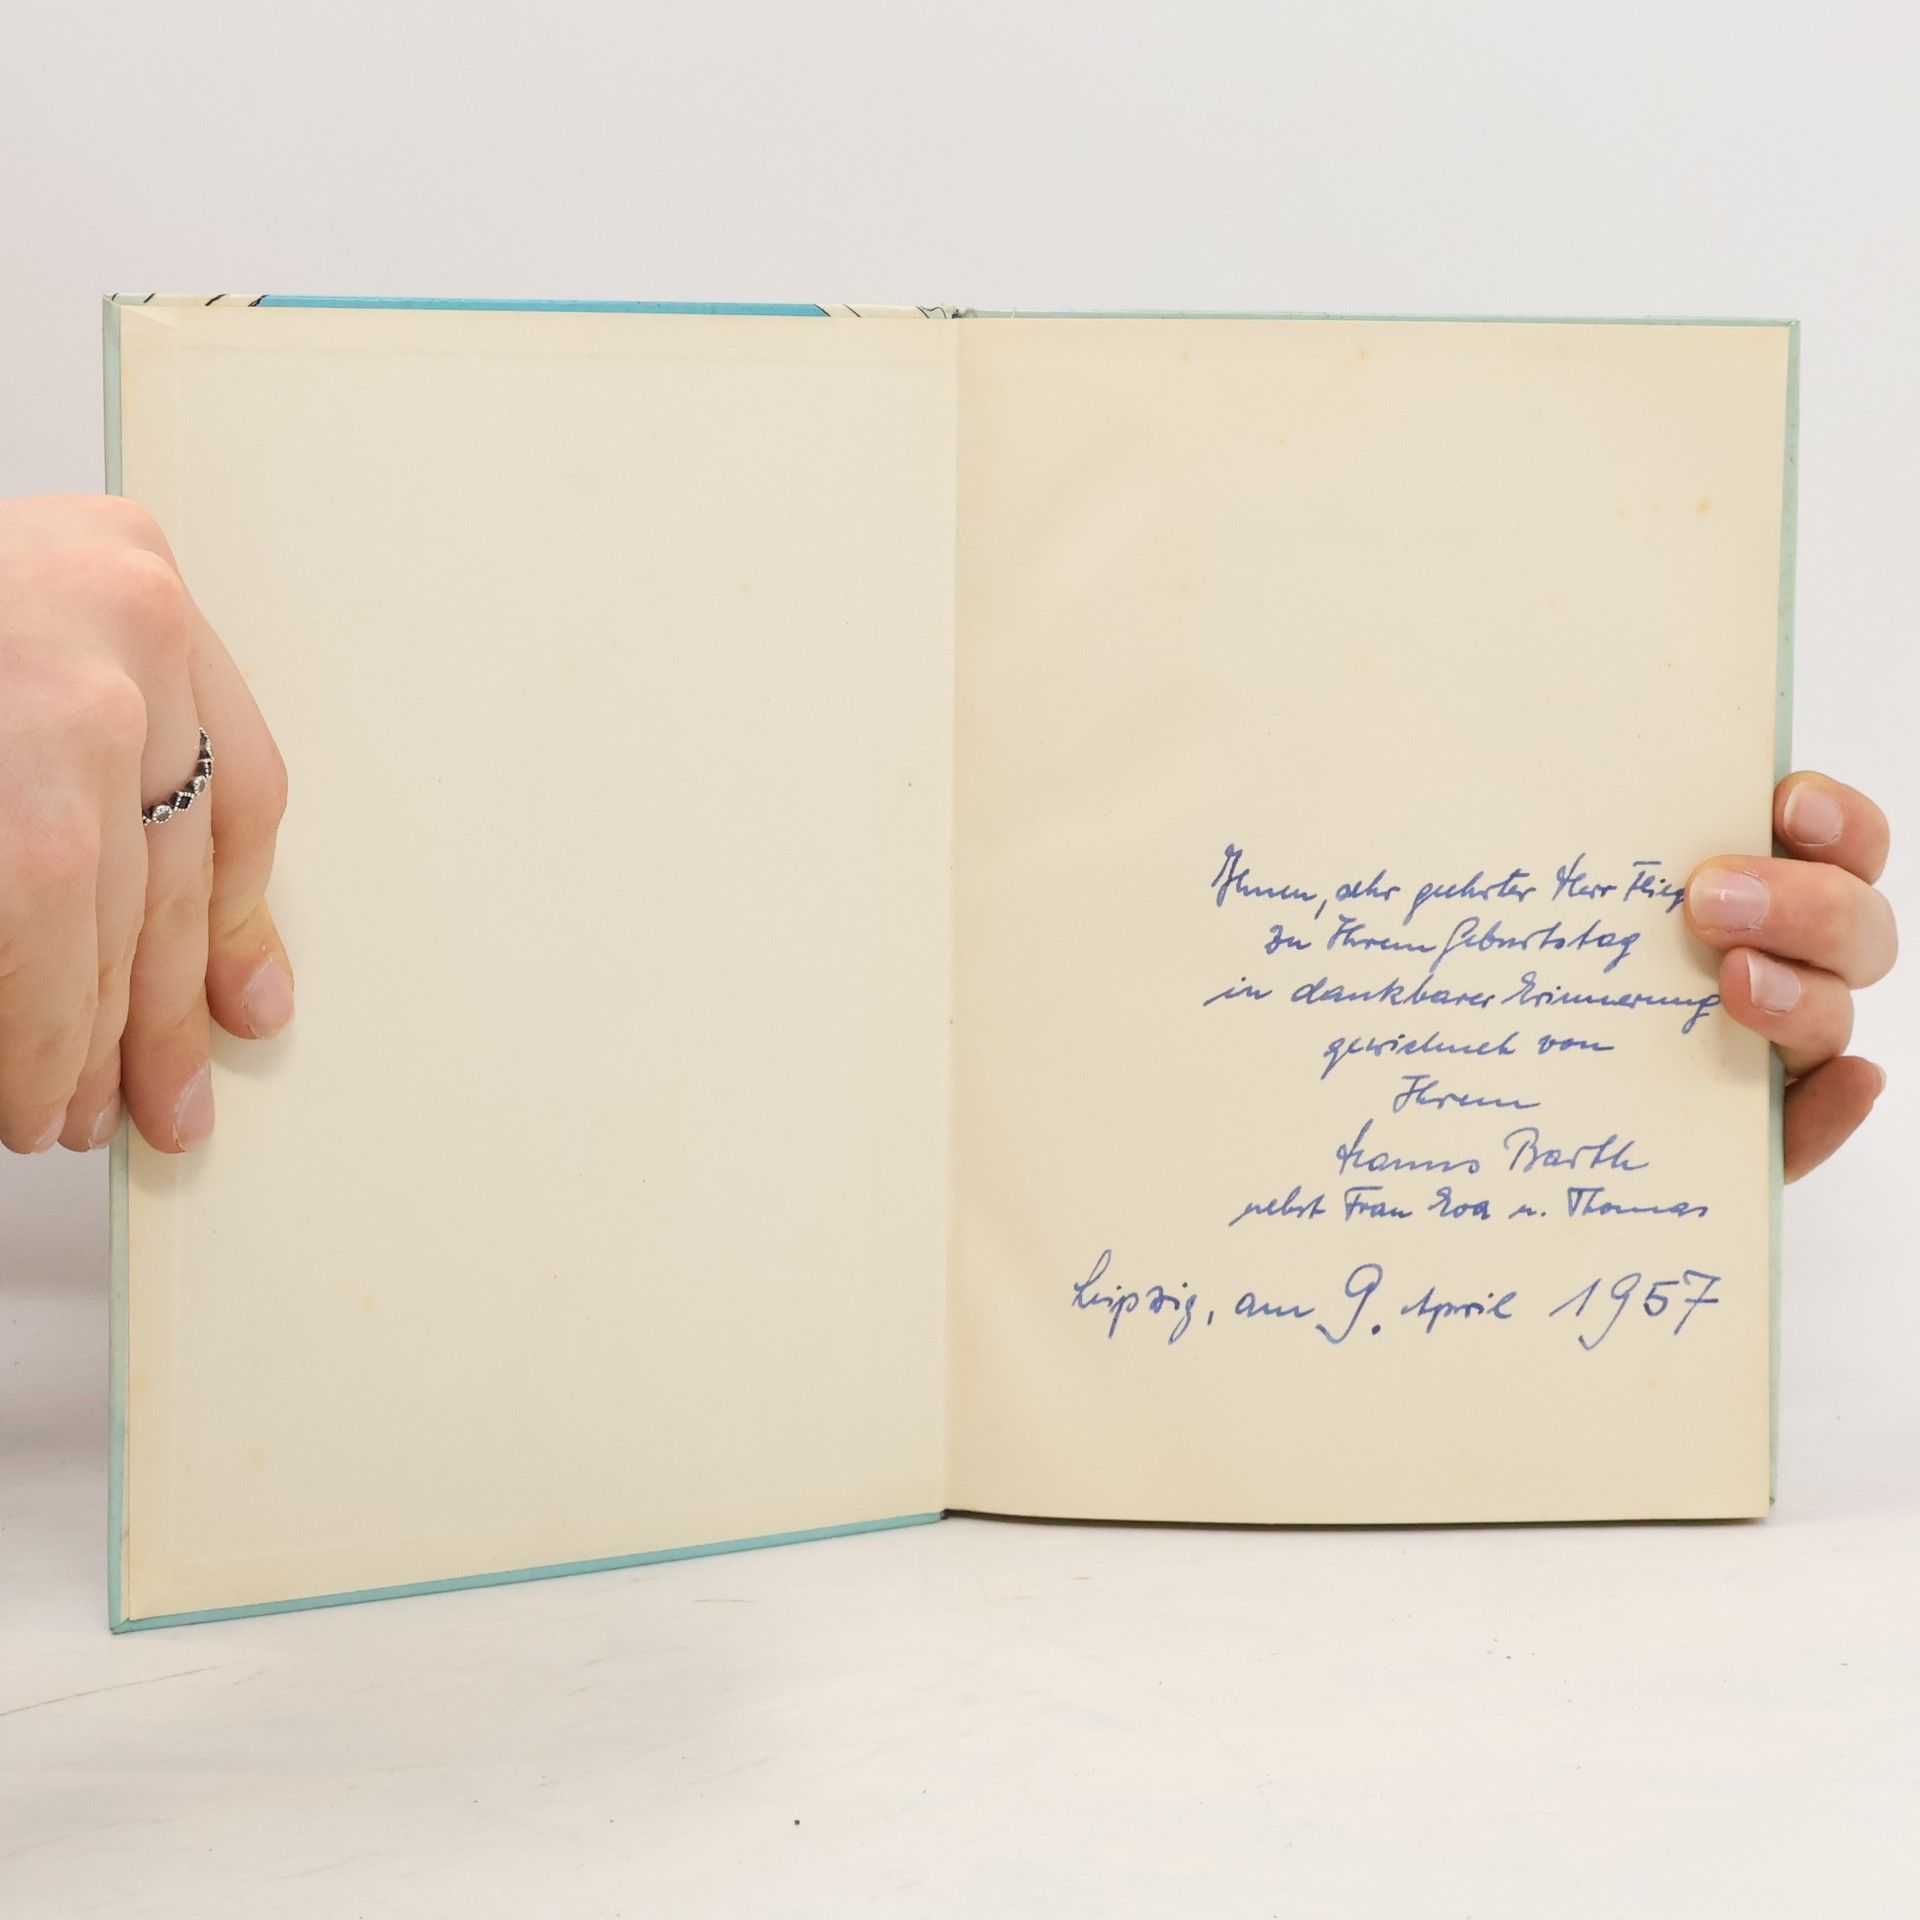 Ihnen, sehr geehrter Herr
zu Ihrem Geburtstag
in dankbarer Erinnerung
gewidmet von
Ihrem
Hanns Barth
nebst Frau Eva u. Thomas
Leipzig, am 9. April 1957